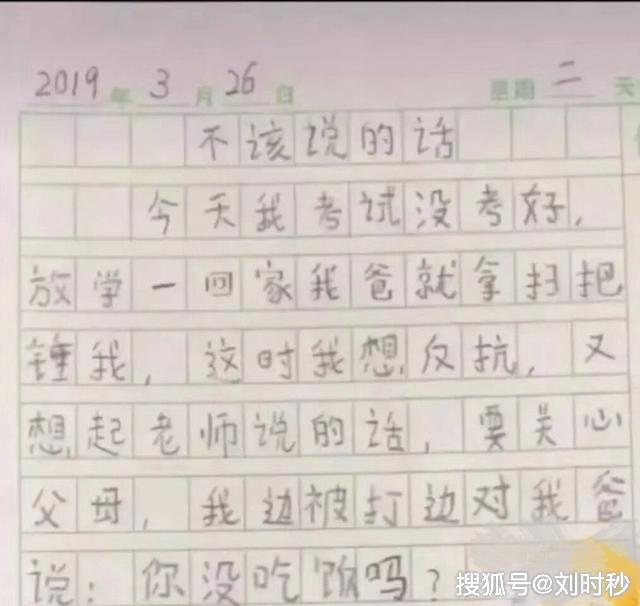 2019年3月26日 星期二 天
不该说的话
今天我考试没考好，
放学一回家我爸就拿扫把
锤我，这时我想反抗，又
想起老师说的话，要关心
父母，我边被打边对我爸
说：你没吃饭吗？
搜狐号@刘时秒